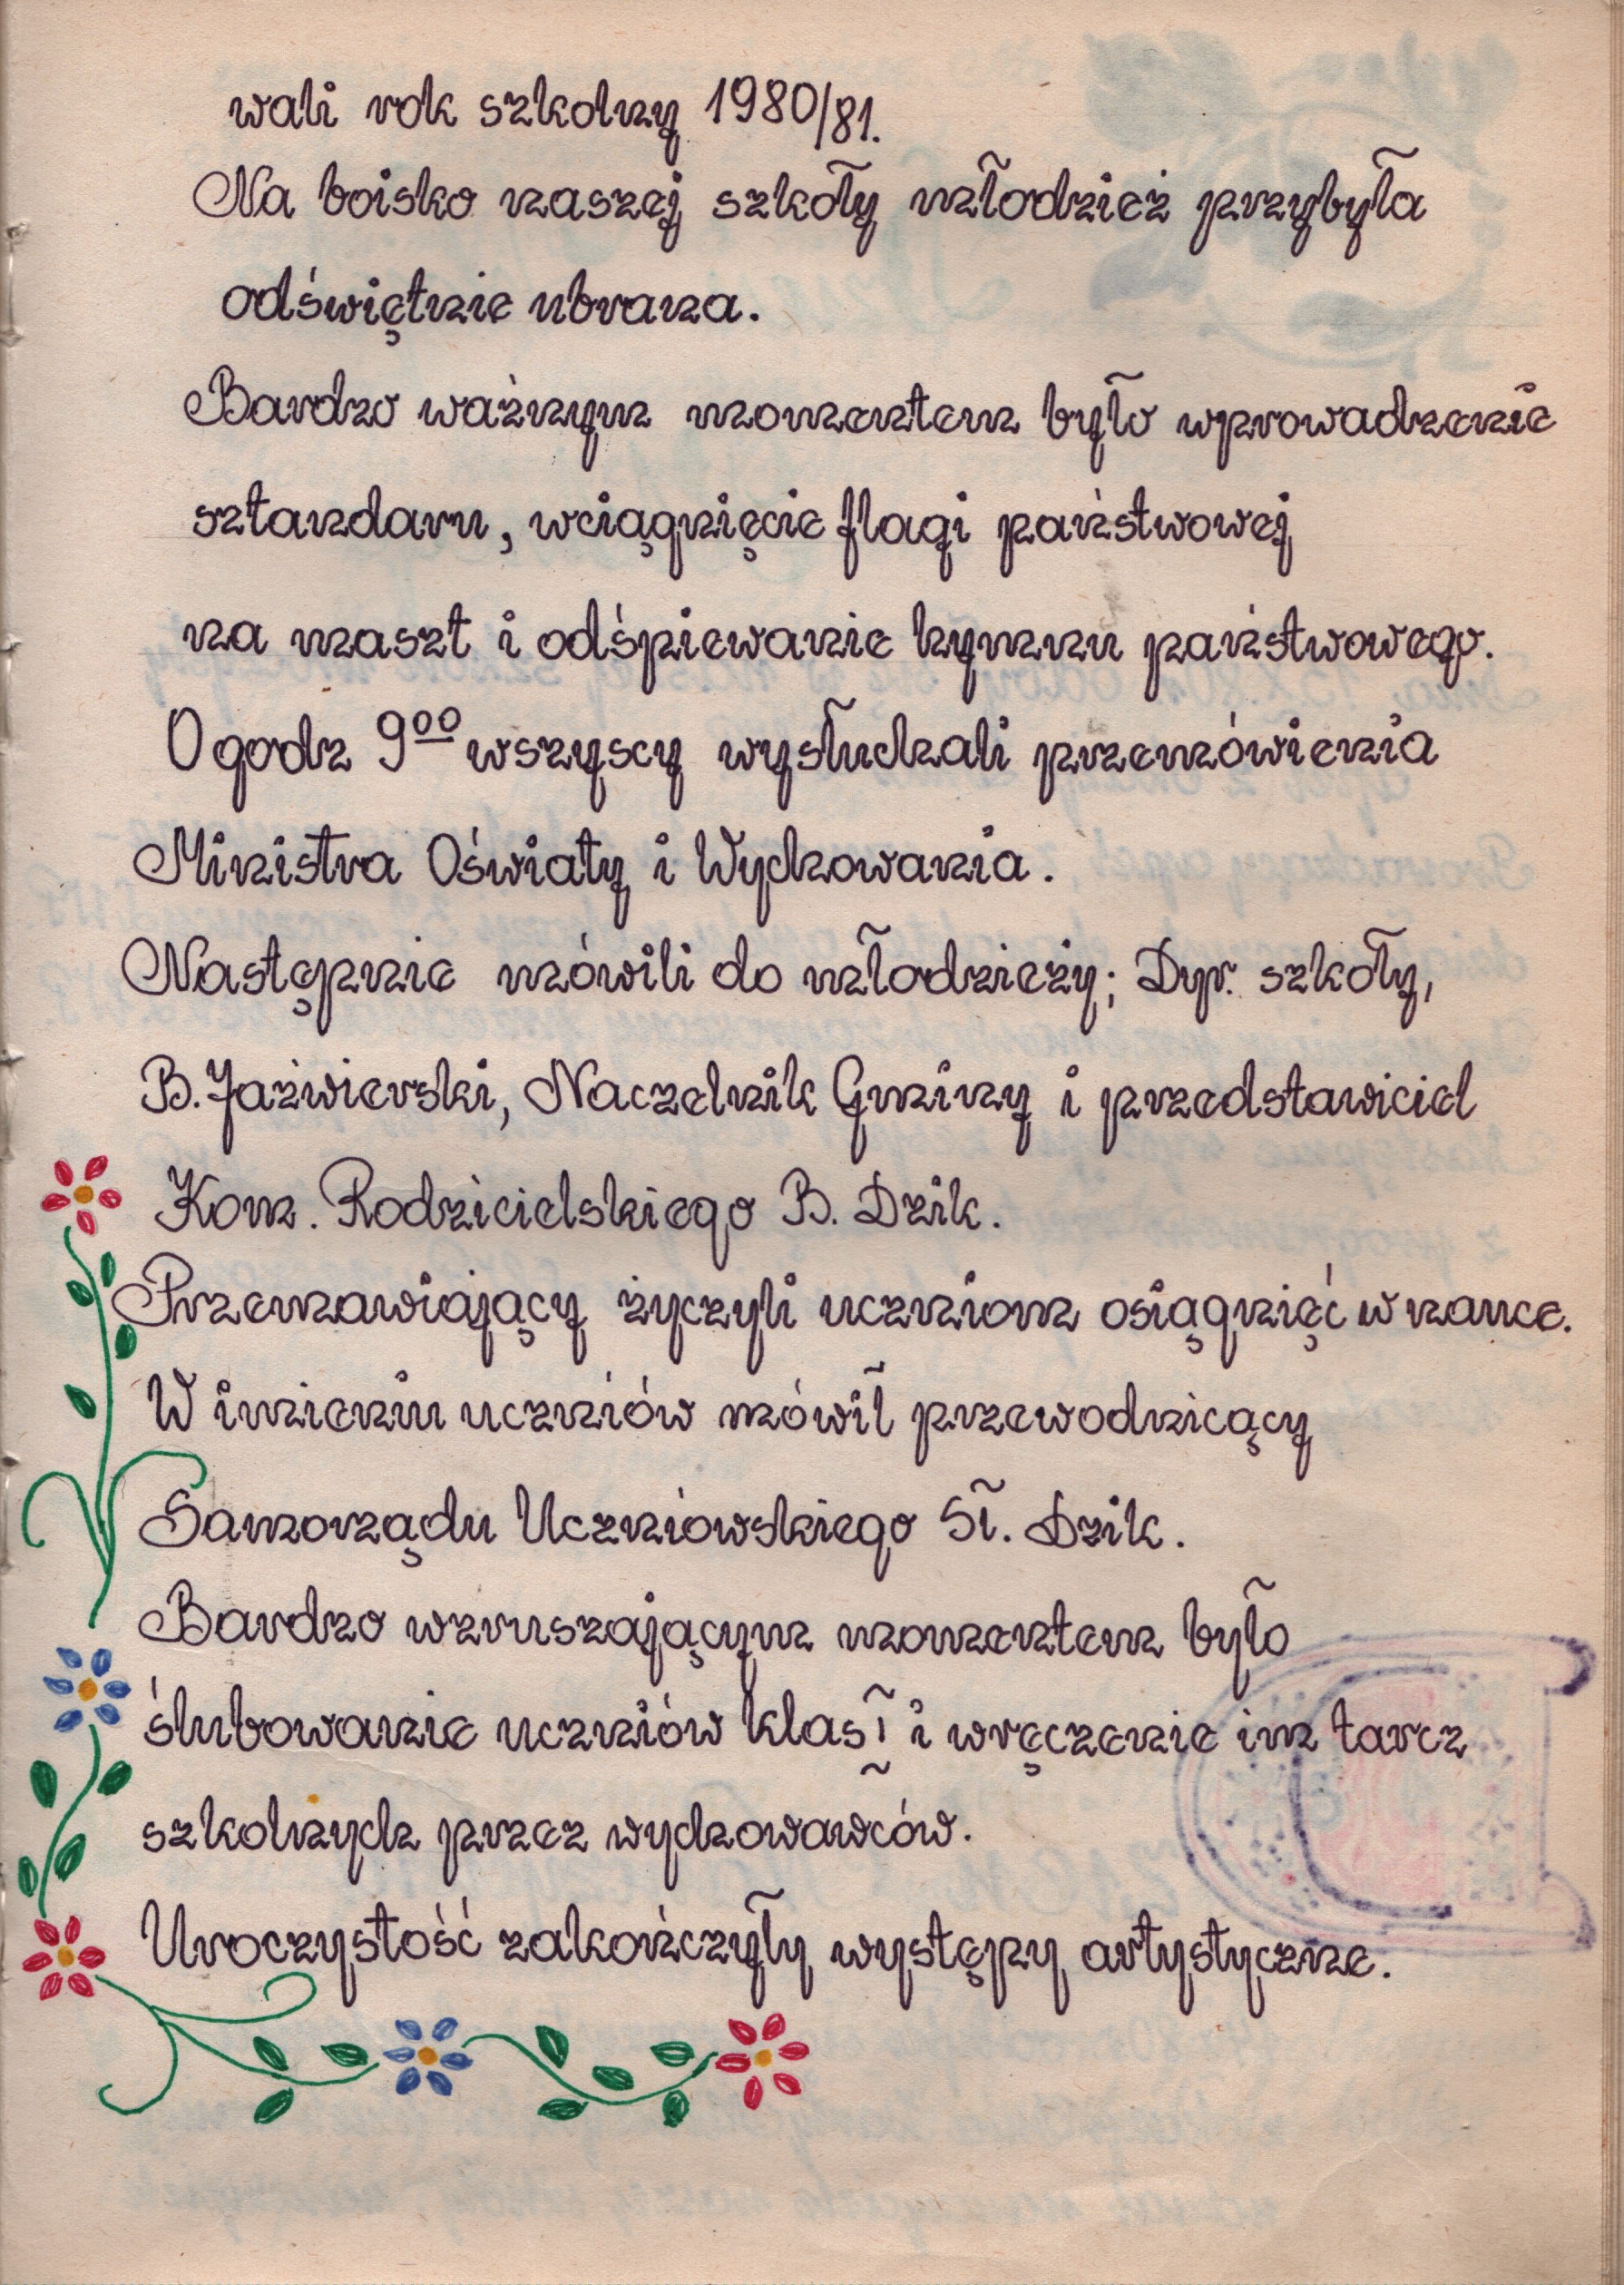 wali rok szkolny 1980/81.
Na boisko naszej szkoły młodzież przybyła
odświętnie ubrana.
Bardzo ważnym momentem było wprowadzenie
sztandaru, wciągnięcie flagi państwowej
na maszt i odśpiewanie hymnu państwowego.
O godz 9⁰⁰ wszyscy wysłuchali przemówienia
Ministra Oświaty i Wychowania.
Następnie mówili do młodzieży; Dyr. szkoły,
B. Jaźwierski, Naczelnik Gminy i przedstawiciel
Kom. Rodzicielskiego B. Dzik.
Przemawiający życzyli uczniom osiągnięć w nauce.
W imieniu uczniów mówił przewodnicący
Samorządu Uczniowskiego Sł. Dzik.
Bardzo wzruszającym momentem było
ślubowanie uczniów klas I i wręczenie im tarcz
szkolnych przez wychowawców.
Uroczystość zakończyły występy artystyczne.